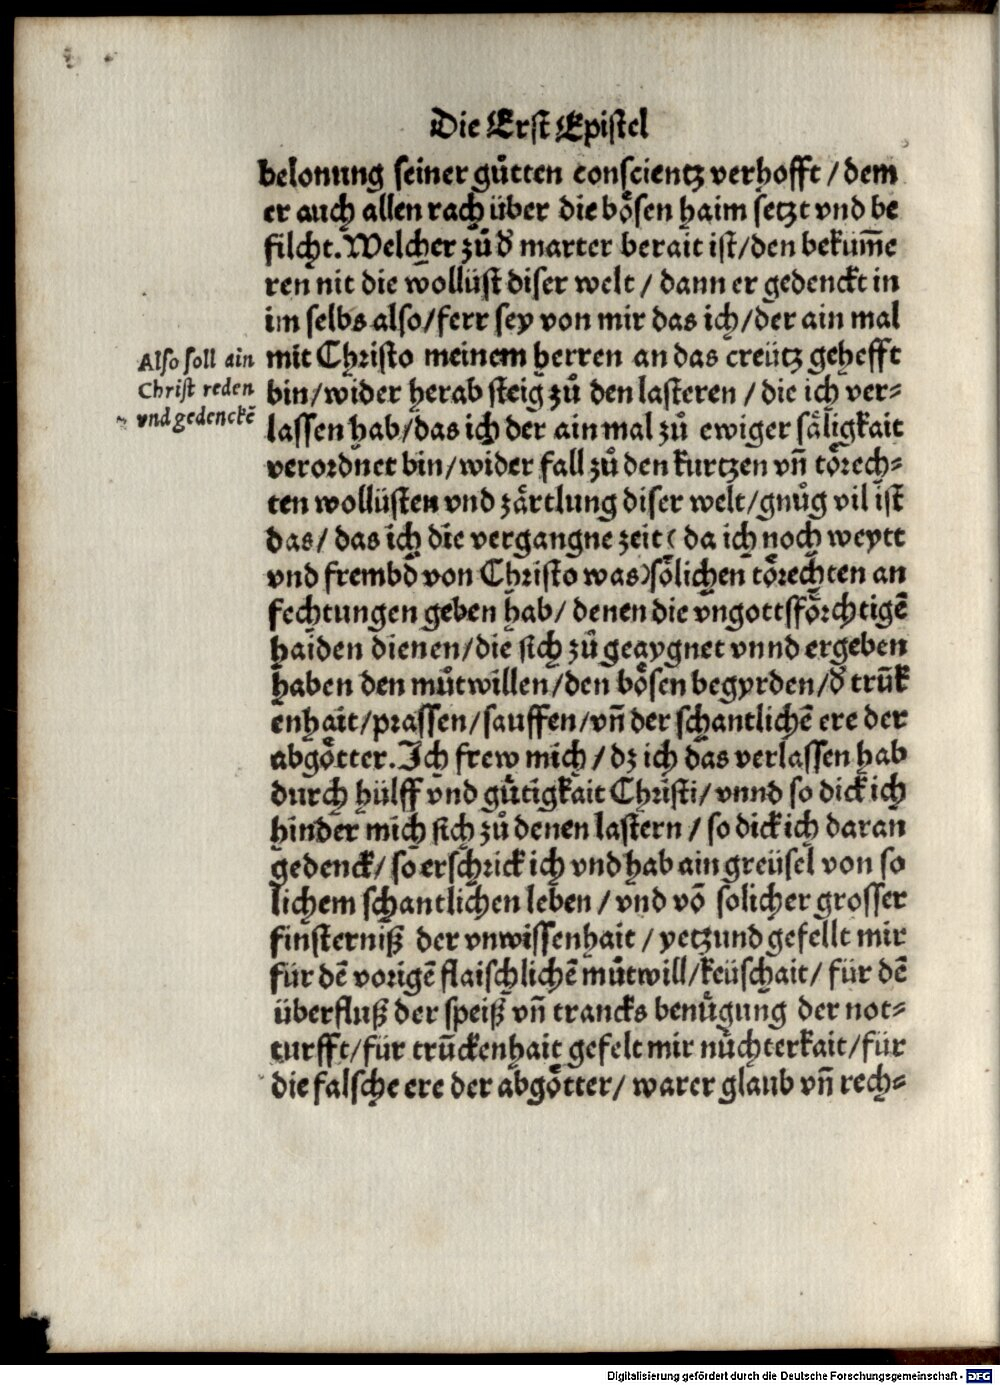 Die Erst Epistel
belonung seiner gůtten conscientz verhofft / dem
er auch allen rach über die bösen haim setzt vnd be
filcht. Welcher zů d̕ marter berait ist/den beküm̄e
ren nit die wollüst diser welt / dann er gedenckt in
im selbs also/ferr sey von mir das ich/der ain mal
mit Christo meinem herren an das creütz gehefft
bin/wider herab steig zů den lasteren / die ich ver⸗
lassen hab/das ich der ain mal zů ewiger säligkait
verordnet bin/wider fall zů den kurtzen vn̄ törech⸗
ten wollüsten vnd zärtlung diser welt/gnůg vil ist
das/ das ich die vergangne zeit ( da ich noch weytt
vnd frembd von Christo was) sölichen törechten an
fechtungen geben hab/ denen die vngottsförchtigē
haiden dienen/die sich zů geaygnet vnnd ergeben
haben den můtwillen/den bösen begyrden/d̕ trūk
enhait/prassen/sauffen/vn̄ der schantlichē ere der
abgötter. Ich frew mich / dz ich das verlassen hab
durch hülff vnd gůtigkait Christi/ vnnd so dick ich
hinder mich sich zů denen lastern / so dick ich daran
gedenck/ so erschrick ich vnd hab ain greüsel von so
lichem schantlichen leben / vnd vō solicher grosser
finsterniß der vnwissenhait / yetzund gefellt mir
für dē vorigē flaischlichē můtwill/keüschait/ für dē
überfluß der speiß vn̄ trancks benůgung der not⸗
turfft/für trūckenhait gefelt mir nůchterkait/für
die falsche ere der abgötter/ warer glaub vn̄ rech⸗
Also soll ain
Christ reden
vnd gedenckē
Digitalisierung gefördert durch die Deutsche Forschungsgemeinschaft - DFG